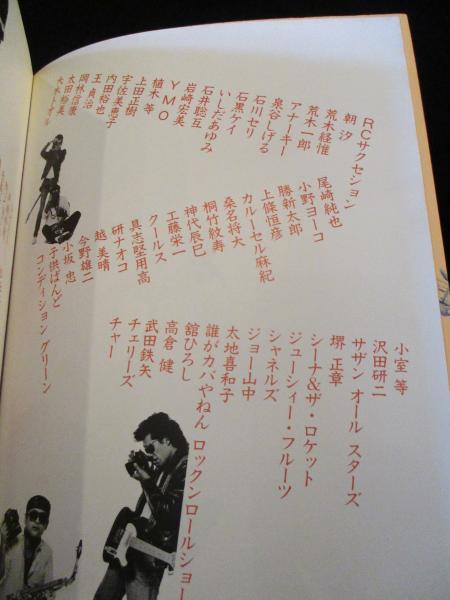 RCサクセション
朝 汐
荒木経惟
荒木一郎
アナーキー
泉谷しげる
石川セリ
石黒ケイ
いしだあゆみ
石井聡互
岩崎宏美
YMO
植木 等
上田正樹
宇佐美恵子
内田裕也
王 貞治
岡林信康
太田裕美
大木トオル
尾崎純也
小野ヨーコ
勝新太郎
上條恒彦
カルーセル麻紀
桑名将大
桐竹紋寿
神代辰巳
工藤栄一
クールス
具志堅用高
研ナオコ
越 美晴
今野雄二
小坂 忠
子供ばんど
コンディション グリーン
小室 等
沢田研二
サザン オール スターズ
堺 正章
シーナ&ザ・ロケット
ジューシィー・フルーツ
シャネルズ
ジョー山中
太地喜和子
誰がカバやねん ロックンロールショー
舘ひろし
高倉 健
武田鉄矢
チェリーズ
チャー